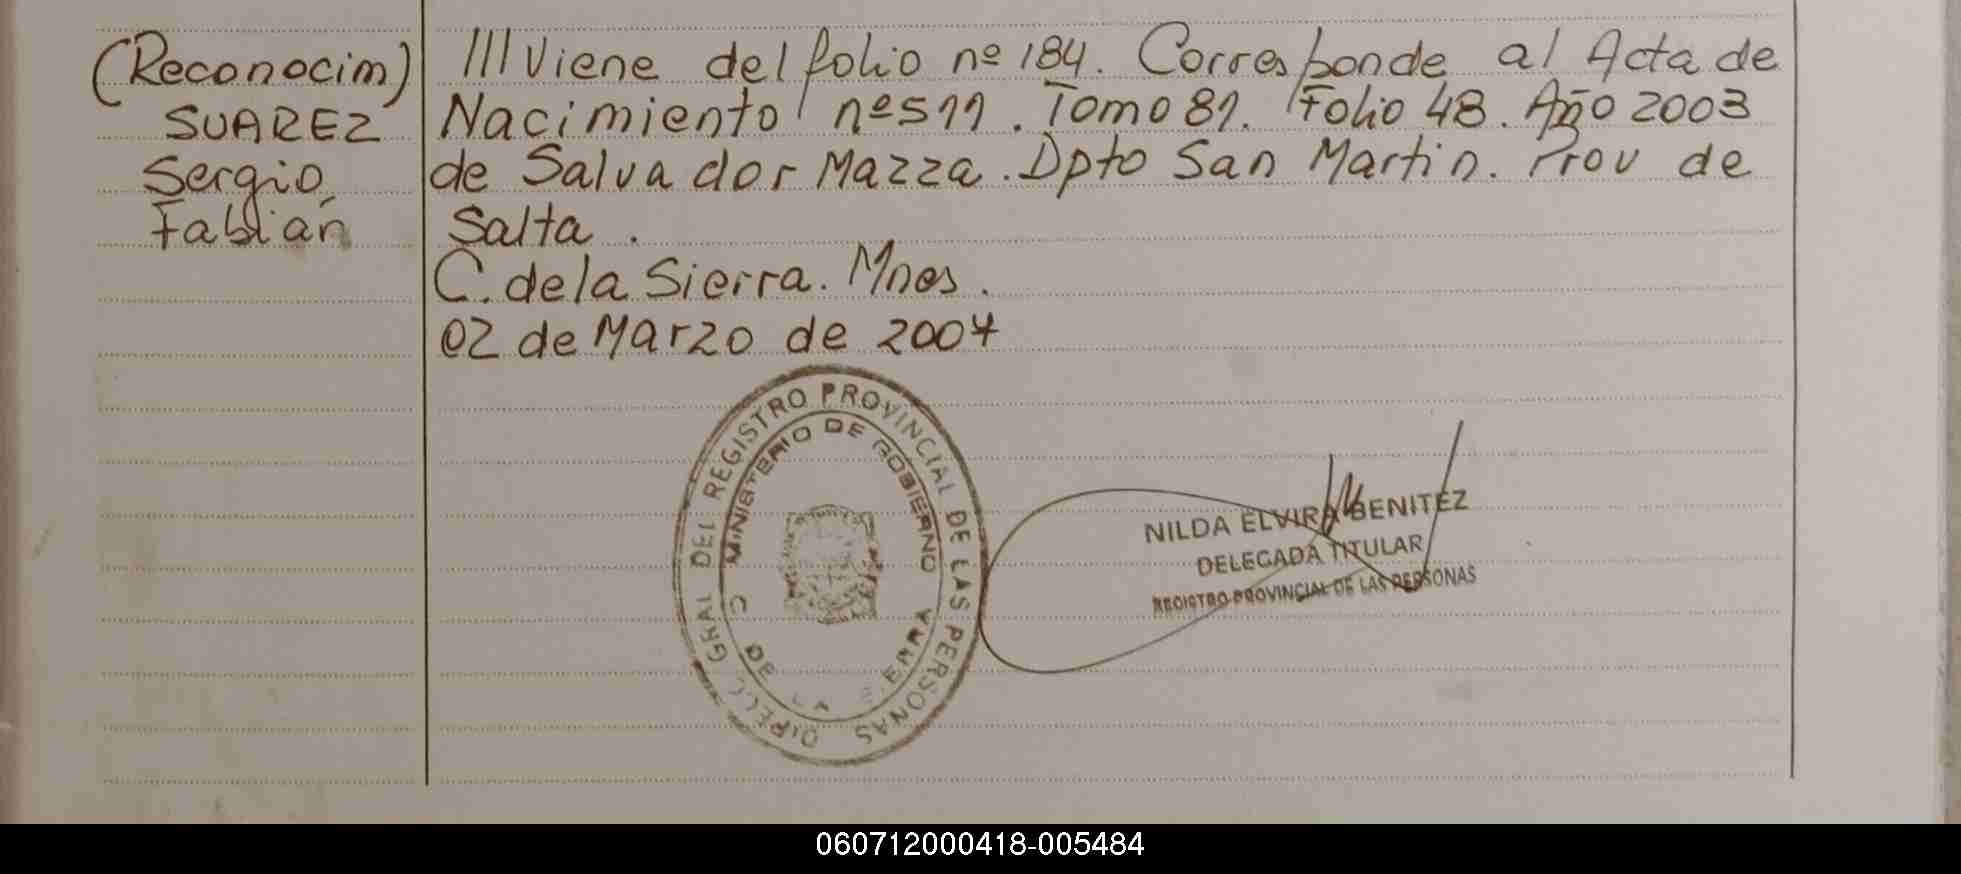 (Reconocim)
SUAREZ
Sergio
Fabian
///Viene del folio nº 184. Corresponde al Acta de
Nacimiento nº 511. Tomo 81. Folio 48. Año 2003
de Salvador Mazza. Dpto San Martin. Prov de
Salta.
C. de la Sierra. Mnes.
02 de Marzo de 2004
GRAL DEL REGISTRO PROVINCIAL DE LAS PERSONAS
MINISTERIO DE GOBIERNO
NILDA ELVIRA BENITEZ
DELEGADA TITULAR
REGISTRO PROVINCIAL DE LAS PERSONAS
060712000418-005484